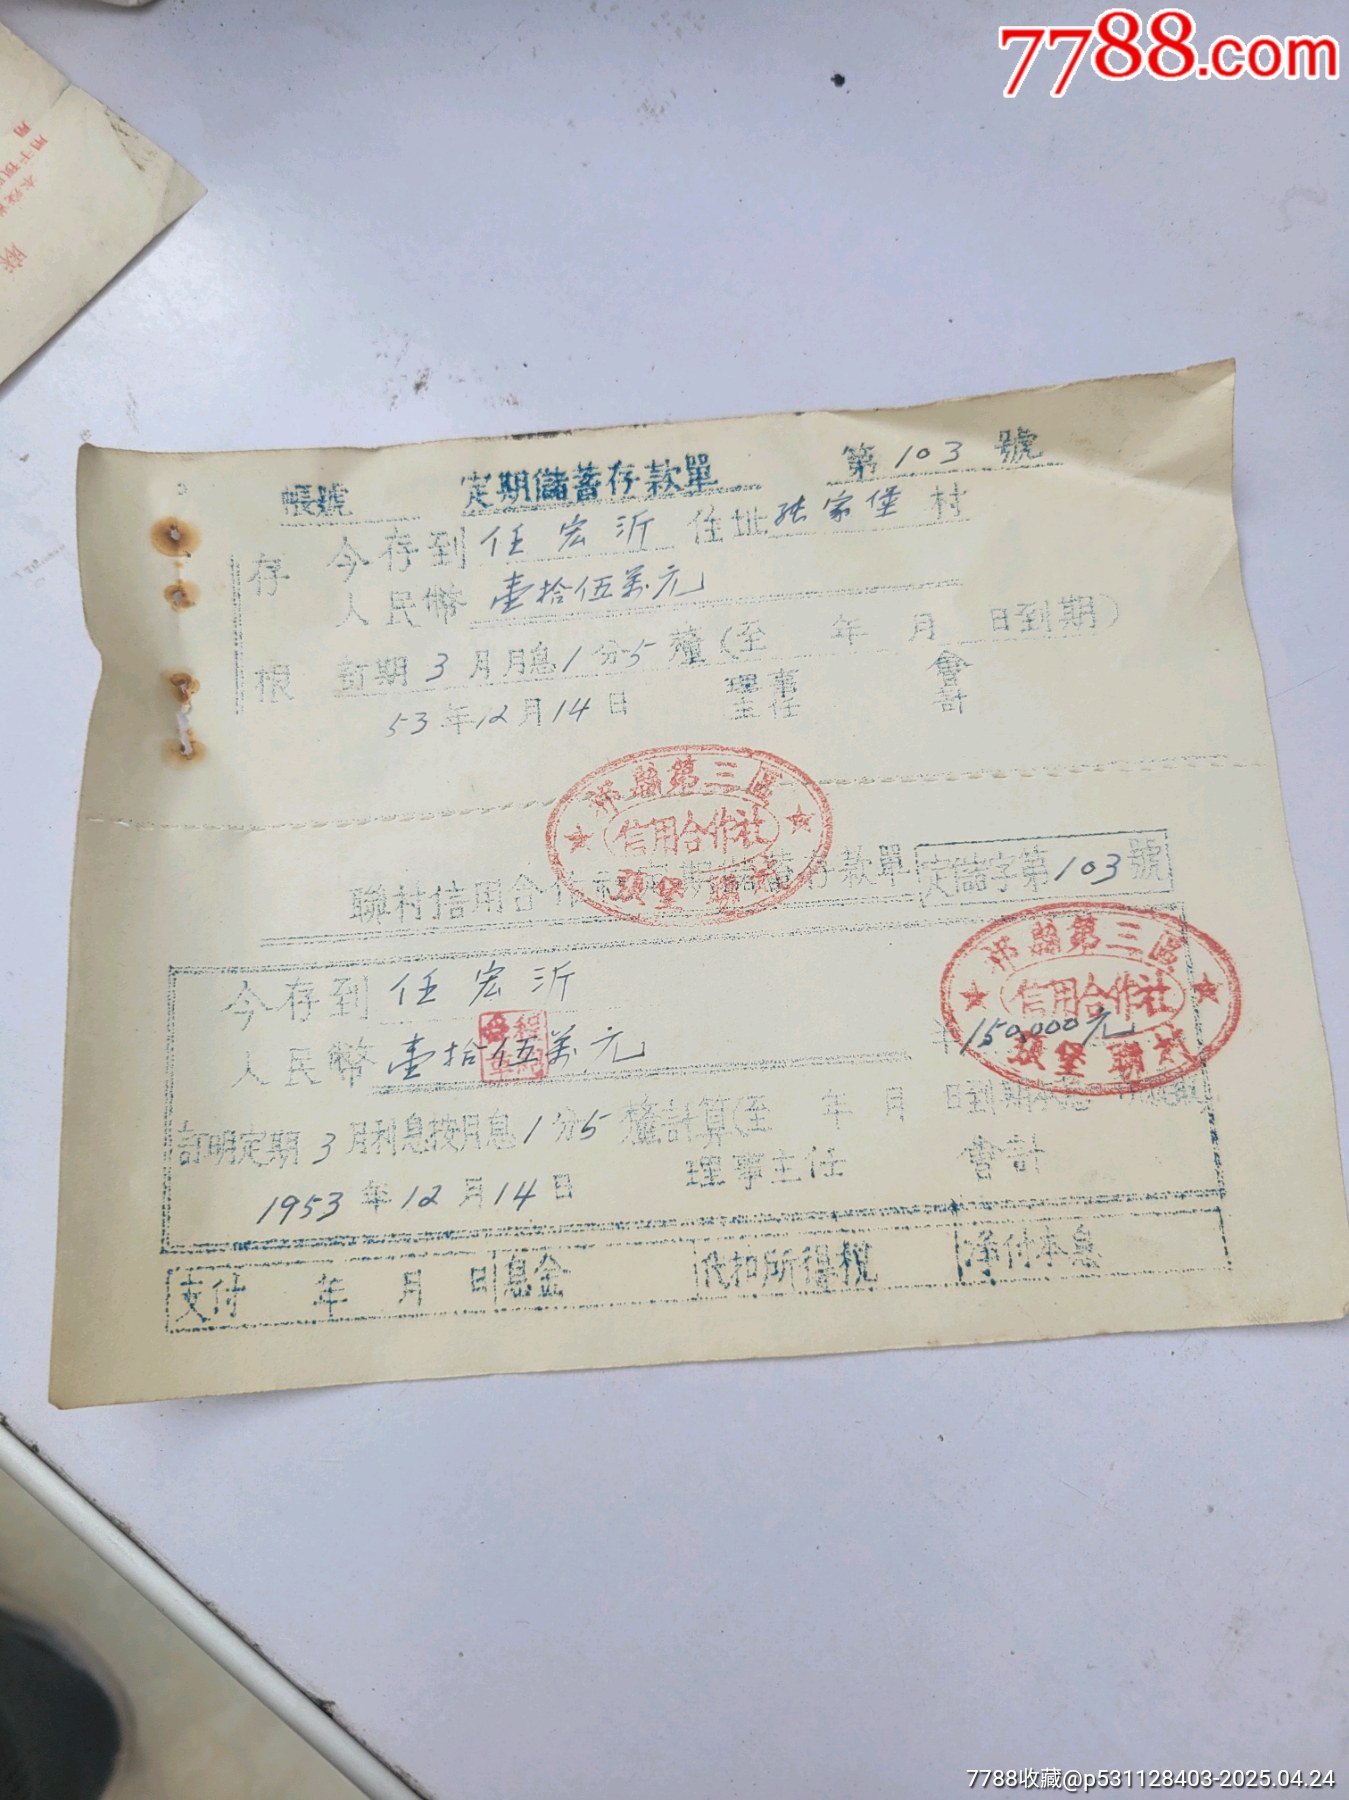 7788.com
帳號 定期儲蓄存款單 第103號
存根
今存到任宏沂 住址张家堡村
人民幣壹拾伍萬元
訂期3月月息1分5釐(至 年 月 日到期)
53年12月14日 理事主任 會計
第三區
信用合作社
聯村信用合作社定期儲蓄存款單 定儲字第103號
今存到任宏沂
第三區
信用合作社
人民幣壹拾伍萬元 150,000元
訂明定期3月利息按月息1分5釐計算(至 年 月 日到期
1953年12月14日 理事主任 會計
支付 年 月 日 息金 代扣所得稅 淨付本息
7788收藏@p531128403-2025.04.24